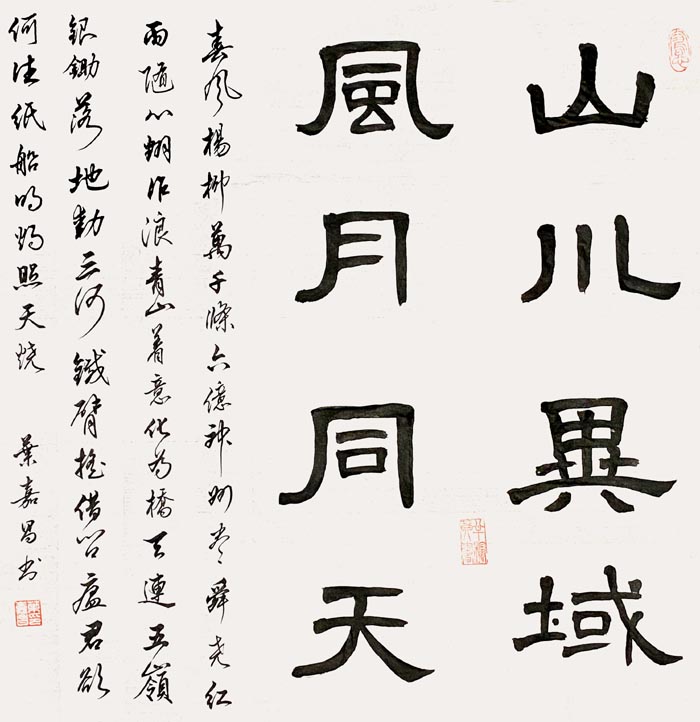 山川異域
風月同天
春風楊柳萬千條六億神州盡舜堯紅
雨隨心翻作浪青山着意化為橋天連五嶺
銀鋤落地動三河鐵臂搖借問瘟君欲
何往紙船明燭照天燒
葉嘉昌書